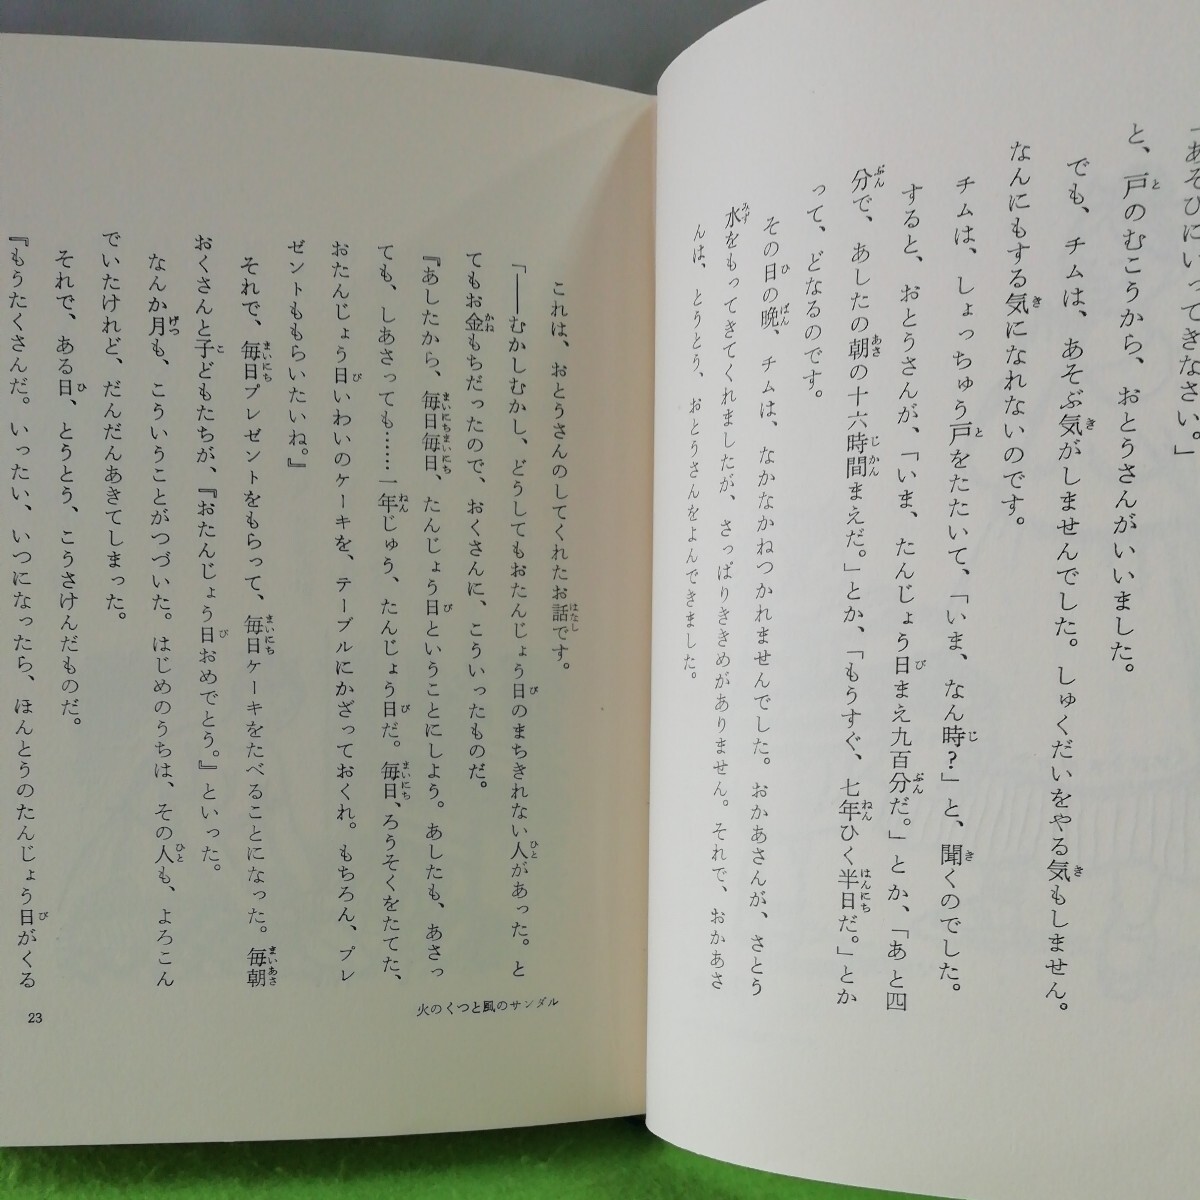 「あそびにいってきなさい。」
と、戸のむこうから、おとうさんがいいました。
でも、チムは、あそぶ気がしませんでした。しゅくだいをやる気もしません。
なんにもする気になれないのです。
チムは、しょっちゅう戸をたたいて、「いま、なん時？」と、聞くのでした。
すると、おとうさんが、「いま、たんじょう日まえ九百分だ。」とか、「あと四
分で、あしたの朝の十六時間まえだ。」とか、「もうすぐ、七年ひく半日だ。」とか
って、どなるのです。
その日の晩、チムは、なかなかねつかれませんでした。おかあさんが、さとう
水をもってきてくれましたが、さっぱりききめがありません。それで、おかあさ
んは、とうとう、おとうさんをよんできました。
これは、おとうさんのしてくれたお話です。
「――むかしむかし、どうしてもおたんじょう日のまちきれない人があった。と
てもお金もちだったので、おくさんに、こういったものだ。
『あしたから、毎日毎日、たんじょう日ということにしよう。あしたも、あさっ
ても、しあさっても……一年じゅう、たんじょう日だ。毎日、ろうそくをたてた、
おたんじょう日いわいのケーキを、テーブルにかざっておくれ。もちろん、プレ
ゼントももらいたいね。』
それで、毎日プレゼントをもらって、毎日ケーキをたべることになった。毎朝
おくさんと子どもたちが、『おたんじょう日おめでとう。』といった。
なんか月も、こういうことがつづいた。はじめのうちは、その人も、よろこん
でいたけれど、だんだんあきてしまった。
それで、ある日、とうとう、こうさけんだものだ。
『もうたくさんだ。いったい、いつになったら、ほんとうのたんじょう日がくる
火のくつと風のサンダル
23